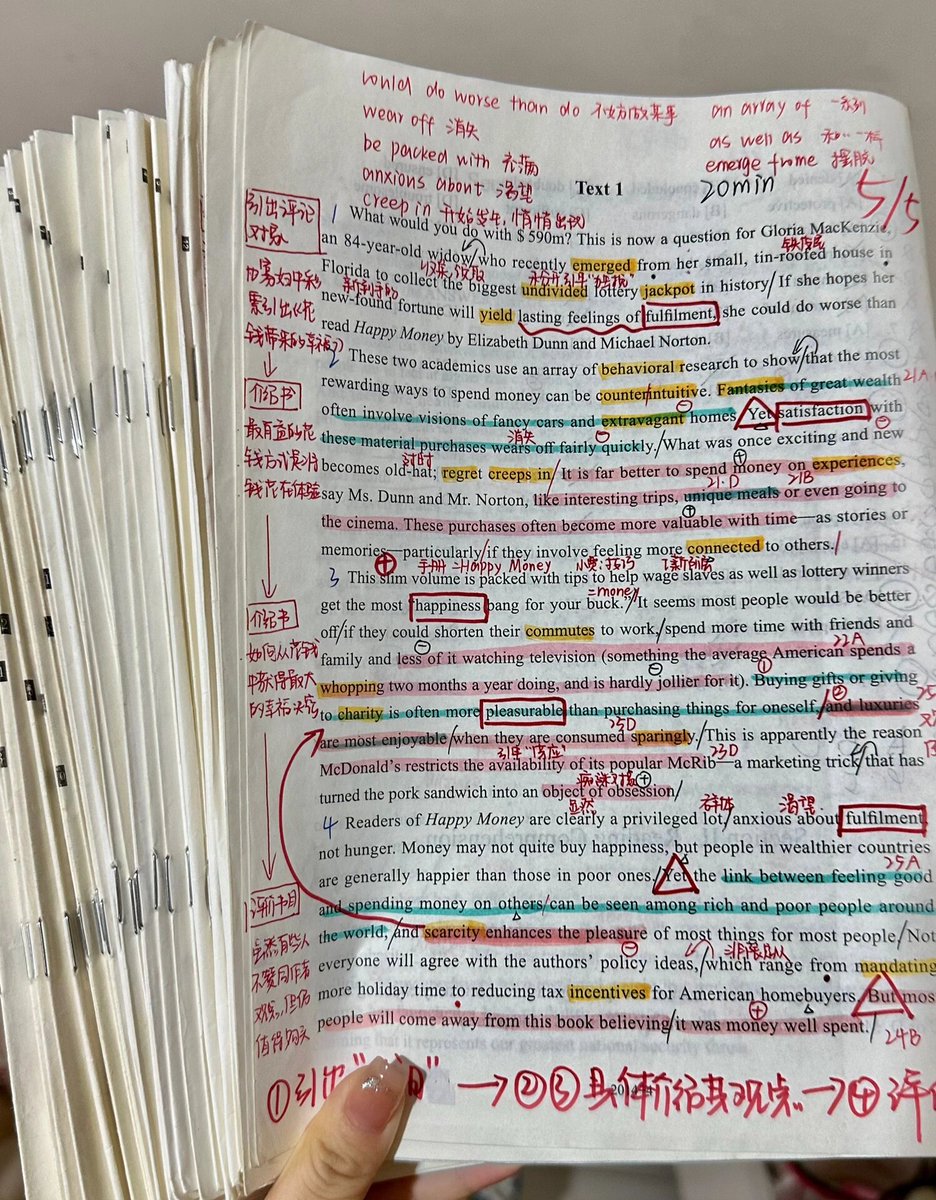 could do worse than do 不妨做某事
an array of 一系列
wear off 消失
as well as 和…一样
be packed with 充满
emerge frome 摆脱
anxions about 渴望
Text 1
20min
5/5
creep in 开始发生,悄悄出现
引出评论
对象
1 What would you do with $ 590m? This is now a question for Gloria MacKenzie,
铁皮房
an 84-year-old widow who recently emerged from her small, tin-roofed house in
Florida to collect the biggest undivided lottery jackpot in history. If she hopes her
new-found fortune will yield lasting feelings of fulfilment, she could do worse than
read Happy Money by Elizabeth Dunn and Michael Norton.
2 These two academics use an array of behavioral research to show that the most
rewarding ways to spend money can be counterintuitive. Fantasies of great wealth
21A
often involve visions of fancy cars and extravagant homes. Yet satisfaction with
介绍书
消失
these material purchases wears off fairly quickly. What was once exciting and new
过时
becomes old-hat; regret creeps in. It is far better to spend money on experiences,
21.D
21B
say Ms. Dunn and Mr. Norton, like interesting trips, unique meals or even going to
the cinema. These purchases often become more valuable with time—as stories or
memories—particularly if they involve feeling more connected to others.
手册 =Happy Money
3 This slim volume is packed with tips to help wage slaves as well as lottery winners
=money
get the most "happiness bang for your buck." It seems most people would be better
介绍书
off if they could shorten their commutes to work, spend more time with friends and
22A
family and less of it watching television (something the average American spends a
whopping two months a year doing, and is hardly jollier for it). Buying gifts or giving
to charity is often more pleasurable than purchasing things for oneself, and luxuries
25D
are most enjoyable when they are consumed sparingly. This is apparently the reason
23D
McDonald's restricts the availability of its popular McRib—a marketing trick that has
turned the pork sandwich into an object of obsession.
显然
群体
渴望
4 Readers of Happy Money are clearly a privileged lot, anxious about fulfilment,
not hunger. Money may not quite buy happiness, but people in wealthier countries
25A
are generally happier than those in poor ones. Yet the link between feeling good
评价书目
and spending money on others can be seen among rich and poor people around
the world; and scarcity enhances the pleasure of most things for most people. Not
everyone will agree with the authors' policy ideas, which range from mandating
more holiday time to reducing tax incentives for American homebuyers. But most
people will come away from this book believing it was money well spent.
24B
①引出"书目" → ②③具体介绍其观点 → ④ 评